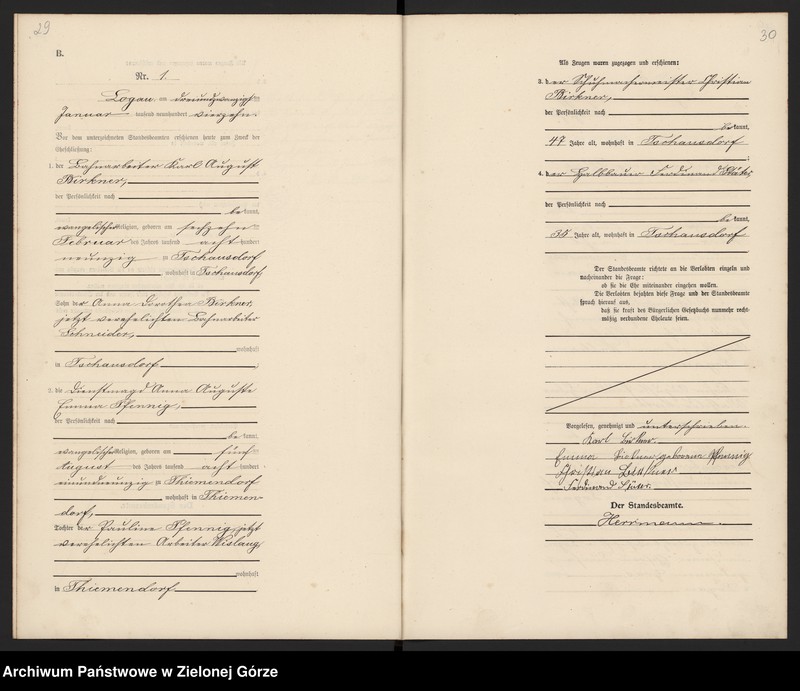 29
B.
Nr. 1
Logau, am dreiundzwanzigsten
Januar tausend neunhundert vierzehn.
Vor dem unterzeichneten Standesbeamten erschienen heute zum Zweck der
Eheschließung:
1. der Bahnarbeiter Karl August
Birkner,
der Persönlichkeit nach
bekannt,
evangelischer Religion, geboren am sechzehnten
Februar des Jahres tausend acht hundert
neunzig in Tschausdorf
, wohnhaft in Tschausdorf
Sohn der Anna Dorothea Birkner,
jetzt verehelichten Bahnarbeiter
Schneider,
wohnhaft
in Tschausdorf
2. die Dienstmagd Anna Auguste
Emma Pfennig,
der Persönlichkeit nach
bekannt,
evangelischer Religion, geboren am fünften
August des Jahres tausend acht hundert
einundneunzig zu Thiemendorf
, wohnhaft in Thiemen-
dorf,
Tochter der Pauline Pfennig, jetzt
verehelichten Arbeiter
wohnhaft
in Thiemendorf
30
Als Zeugen waren zugezogen und erschienen:
3. der Schuhmachermeister Christian
Birkner,
der Persönlichkeit nach
bekannt,
47 Jahre alt, wohnhaft in Tschausdorf
;
4. der Halbbauer Ferdinand
der Persönlichkeit nach
bekannt,
Jahre alt, wohnhaft in Tschausdorf
Der Standesbeamte richtete an die Verlobten einzeln und
nacheinander die Frage:
ob sie die Ehe miteinander eingehen wollen.
Die Verlobten bejahten diese Frage und der Standesbeamte
sprach hierauf aus,
daß sie kraft des Bürgerlichen Gesetzbuchs nunmehr recht-
mäßig verbundene Eheleute seien.
Vorgelesen, genehmigt und unterschrieben.
Karl Birkner.
Emma Birkner geborene Pfennig
Christian Birkner
Ferdinand
Der Standesbeamte.
Herrmann.
Archiwum Państwowe w Zielonej Górze